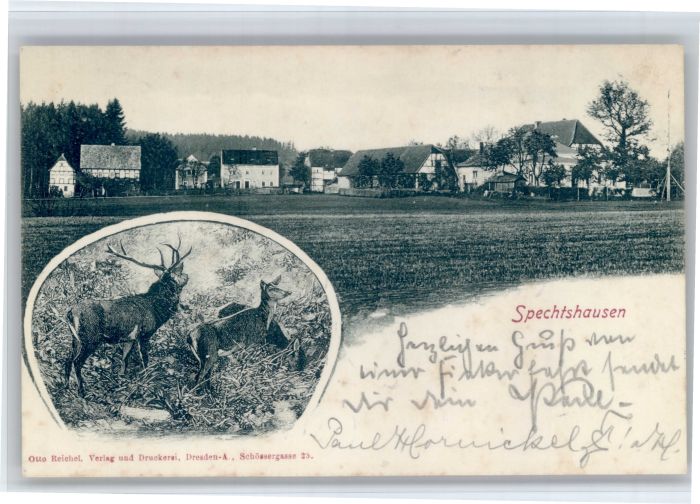 Spechtshausen
Herzlichen Gruß von
einer Finkenfahrt sendet
dir dein
Paul Hornickel
Otto Reichel, Verlag und Druckerei, Dresden-A., Schössergasse 25.